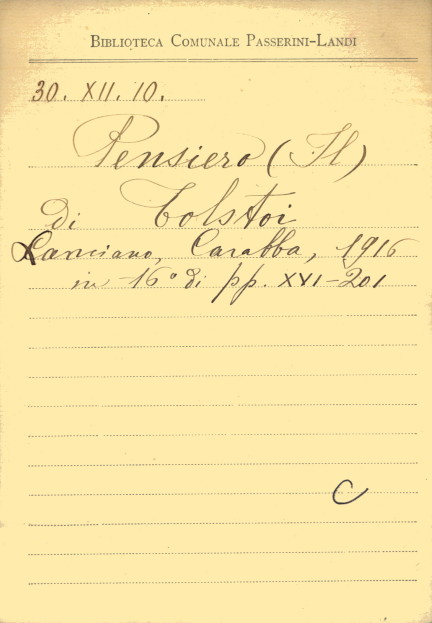 BIBLIOTECA COMUNALE PASSERINI-LANDI
30. XII. 10.
Pensiero (Il)
di Tolstoi
Lanciano, Carabba, 1916
in 16° di pp. XVI-201
C